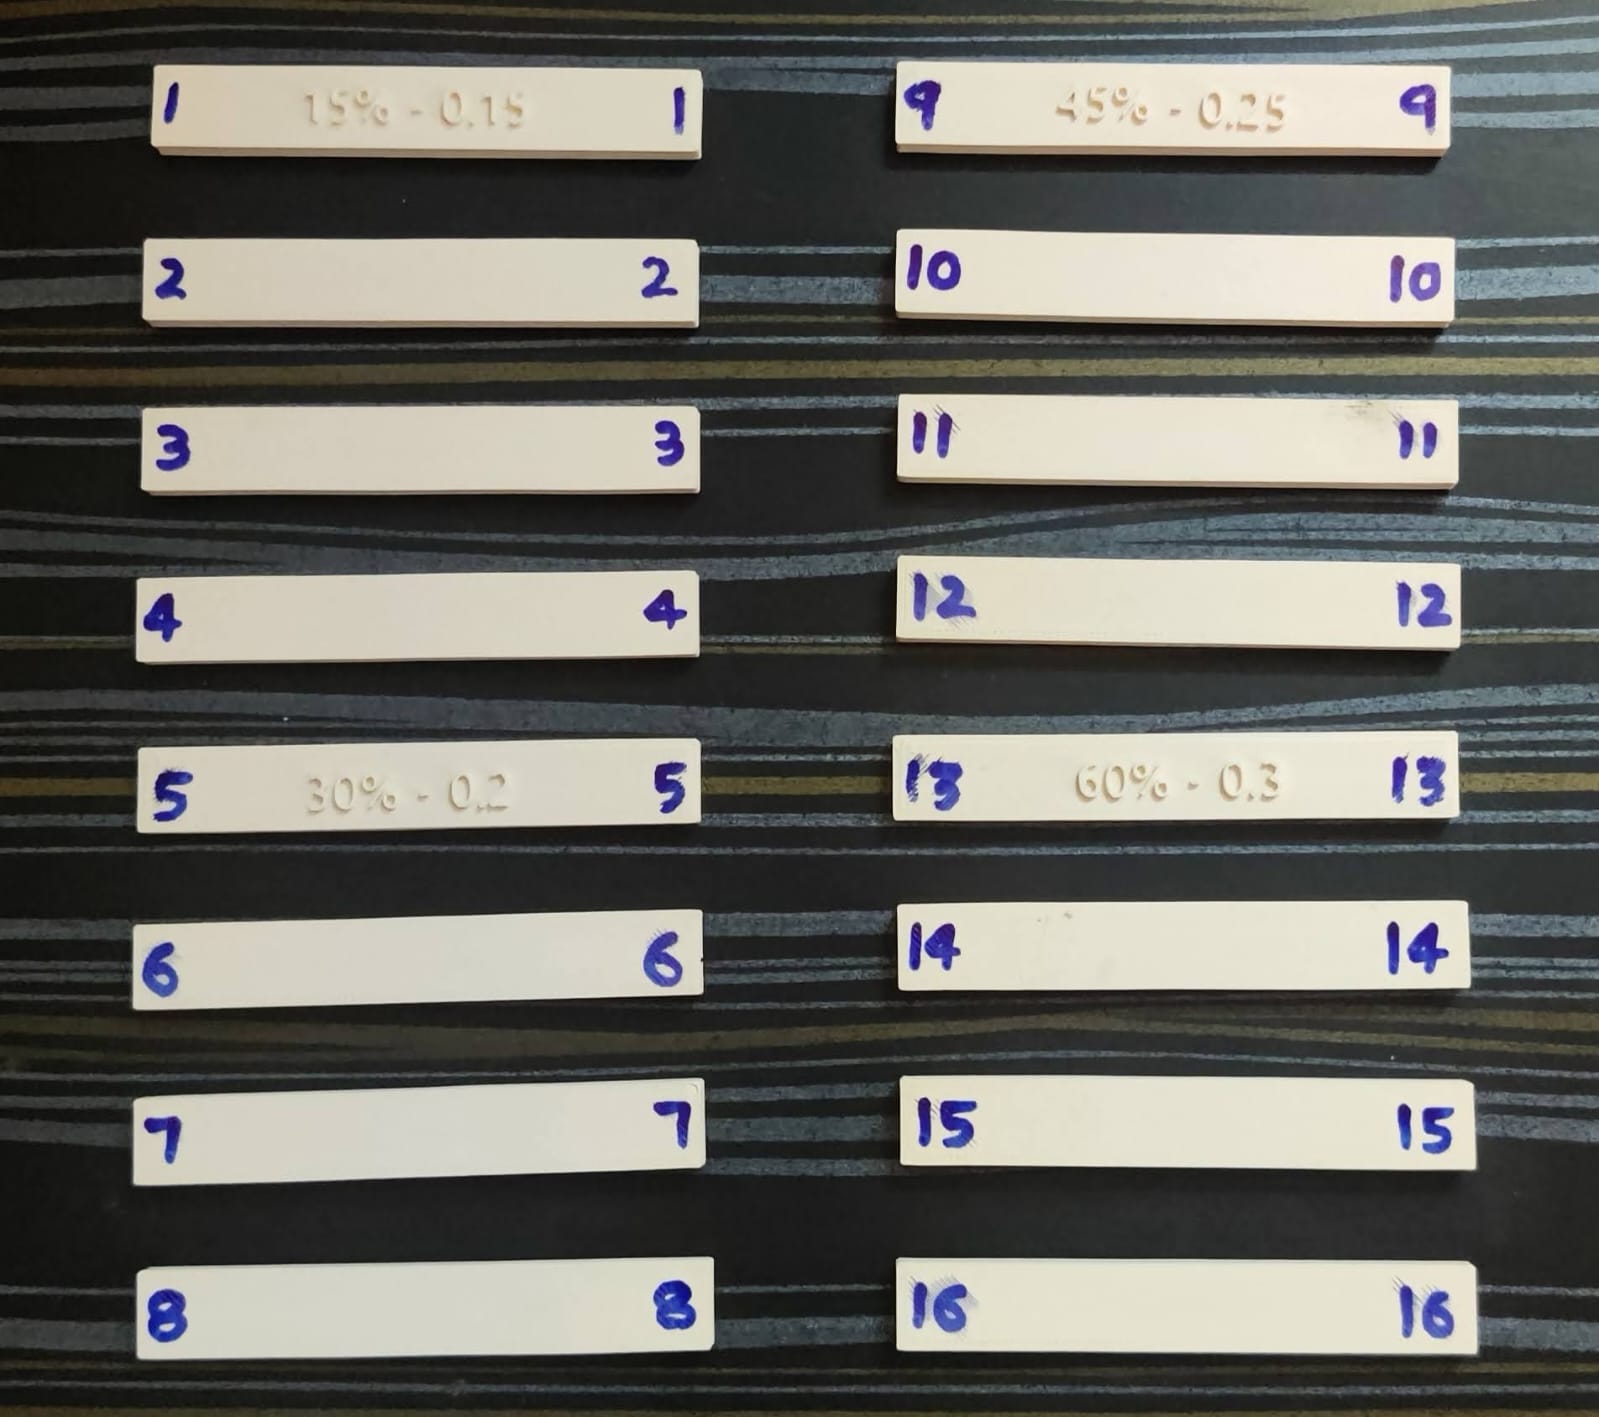 1 15% - 0.15 1
2 2
3 3
4 4
5 30% - 0.2 5
6 6
7 7
8 8
9 45% - 0.25 9
10 10
11 11
12 12
13 60% - 0.3 13
14 14
15 15
16 16